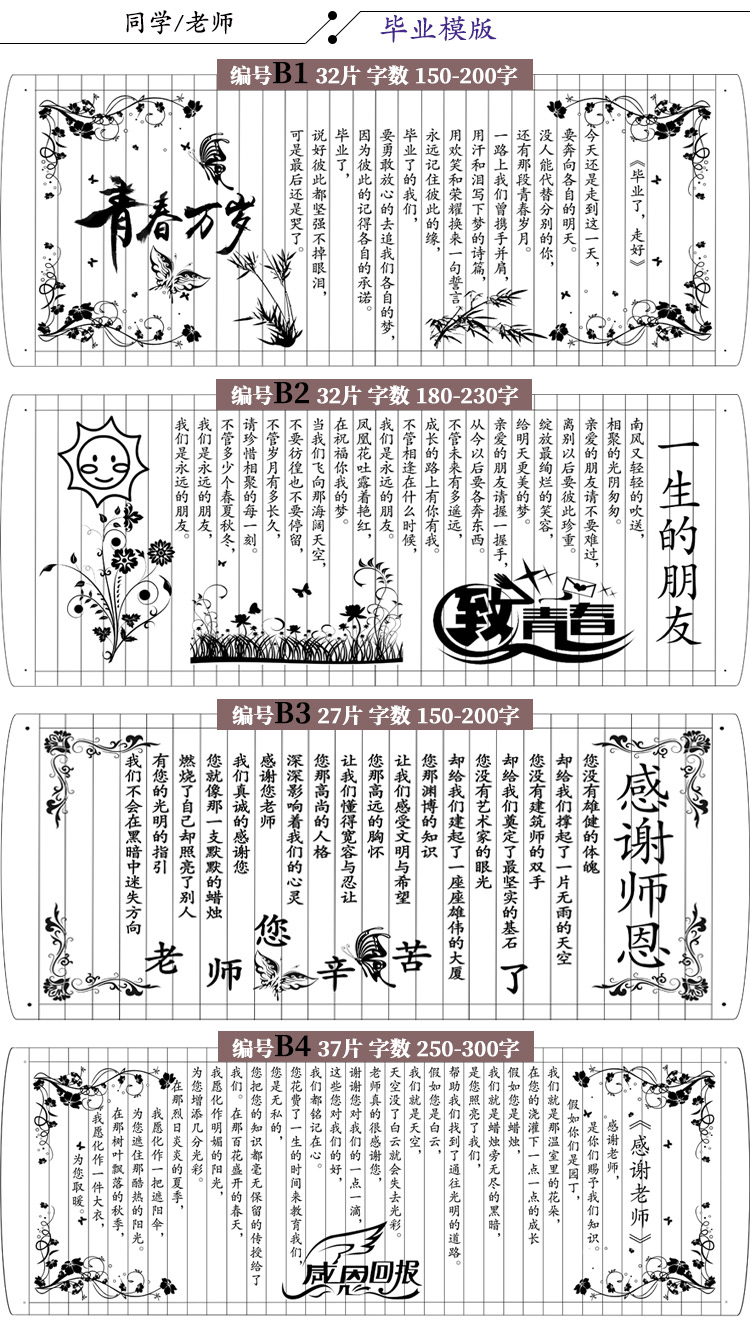 同学/老师
毕业模版
编号B1 32片 字数 150-200字
《毕业了，走好》
今天还是走到这一天，
要奔向各自的明天。
没人能代替分别的你，
还有那段青春岁月。
一路上我们曾携手并肩，
用汗和泪写下梦的诗篇，
用欢笑和荣耀换来一句誓言，
永远记住彼此的缘，
毕业了的我们，
要勇敢放心的去追我们各自的梦，
因为彼此的记得各自的承诺。
毕业了，
说好彼此都坚强不掉眼泪，
可是最后还是哭了。
青春万岁
编号B2 32片 字数 180-230字
一生的朋友
南风又轻轻的吹送，
相聚的光阴匆匆。
亲爱的朋友请不要难过，
离别以后要彼此珍重。
绽放最绚烂的笑容，
给明天更美的梦。
亲爱的朋友请握一握手，
从今以后要各奔东西。
不管未来有多遥远，
成长的路上有你有我。
不管相逢在什么时候，
我们是永远的朋友。
凤凰花吐露着艳红，
在祝福你我的梦。
当我们飞向那海阔天空，
不要彷徨也不要停留，
不管岁月有多长久，
请珍惜相聚的每一刻。
不管多少个春夏秋冬，
我们是永远的朋友，
我们是永远的朋友。
致青春
编号B3 27片 字数 150-200字
感谢师恩
您没有雄健的体魄
却给我们撑起了一片无雨的天空
您没有建筑师的双手
却给我们奠定了最坚实的基石
您没有艺术家的眼光
却给我们建起了一座座雄伟的大厦
您那渊博的知识
让我们感受文明与希望
您那高远的胸怀
让我们懂得宽容与忍让
您那高尚的人格
深深影响着我们的心灵
感谢您老师
我们真诚的感谢您
您就像那一支默默的蜡烛
燃烧了自己却照亮了别人
有您的光明的指引
我们不会在黑暗中迷失方向
老师您辛苦了
编号B4 37片 字数 250-300字
《感谢老师》
感谢老师，
是你们赐予我们知识。
假如你们是园丁，
我们就是那温室里的花朵，
在您的浇灌下一点一点的成长
假如您是蜡烛，
我们就是蜡烛旁无尽的黑暗，
是您照亮了我们，
帮助我们找到了通往光明的道路。
假如您是白云，
我们就是天空，
天空没了白云就会失去光彩。
老师真的很感谢您，
谢谢您对我们的一点一滴，
这些您对我们的好，
我们都铭记在心。
您花费了一生的时间来教育我们，
您是无私的，
您把您的知识都毫无保留的传授给了
我们。在那百花盛开的春天，
我愿化作明媚的阳光，
为您增添几分光彩。
在那烈日炎炎的夏季，
我愿化作一把遮阳伞，
为您遮住那酷热的阳光。
在那树叶飘落的秋季，
我愿化作一件大衣，
为您取暖。
感恩回报